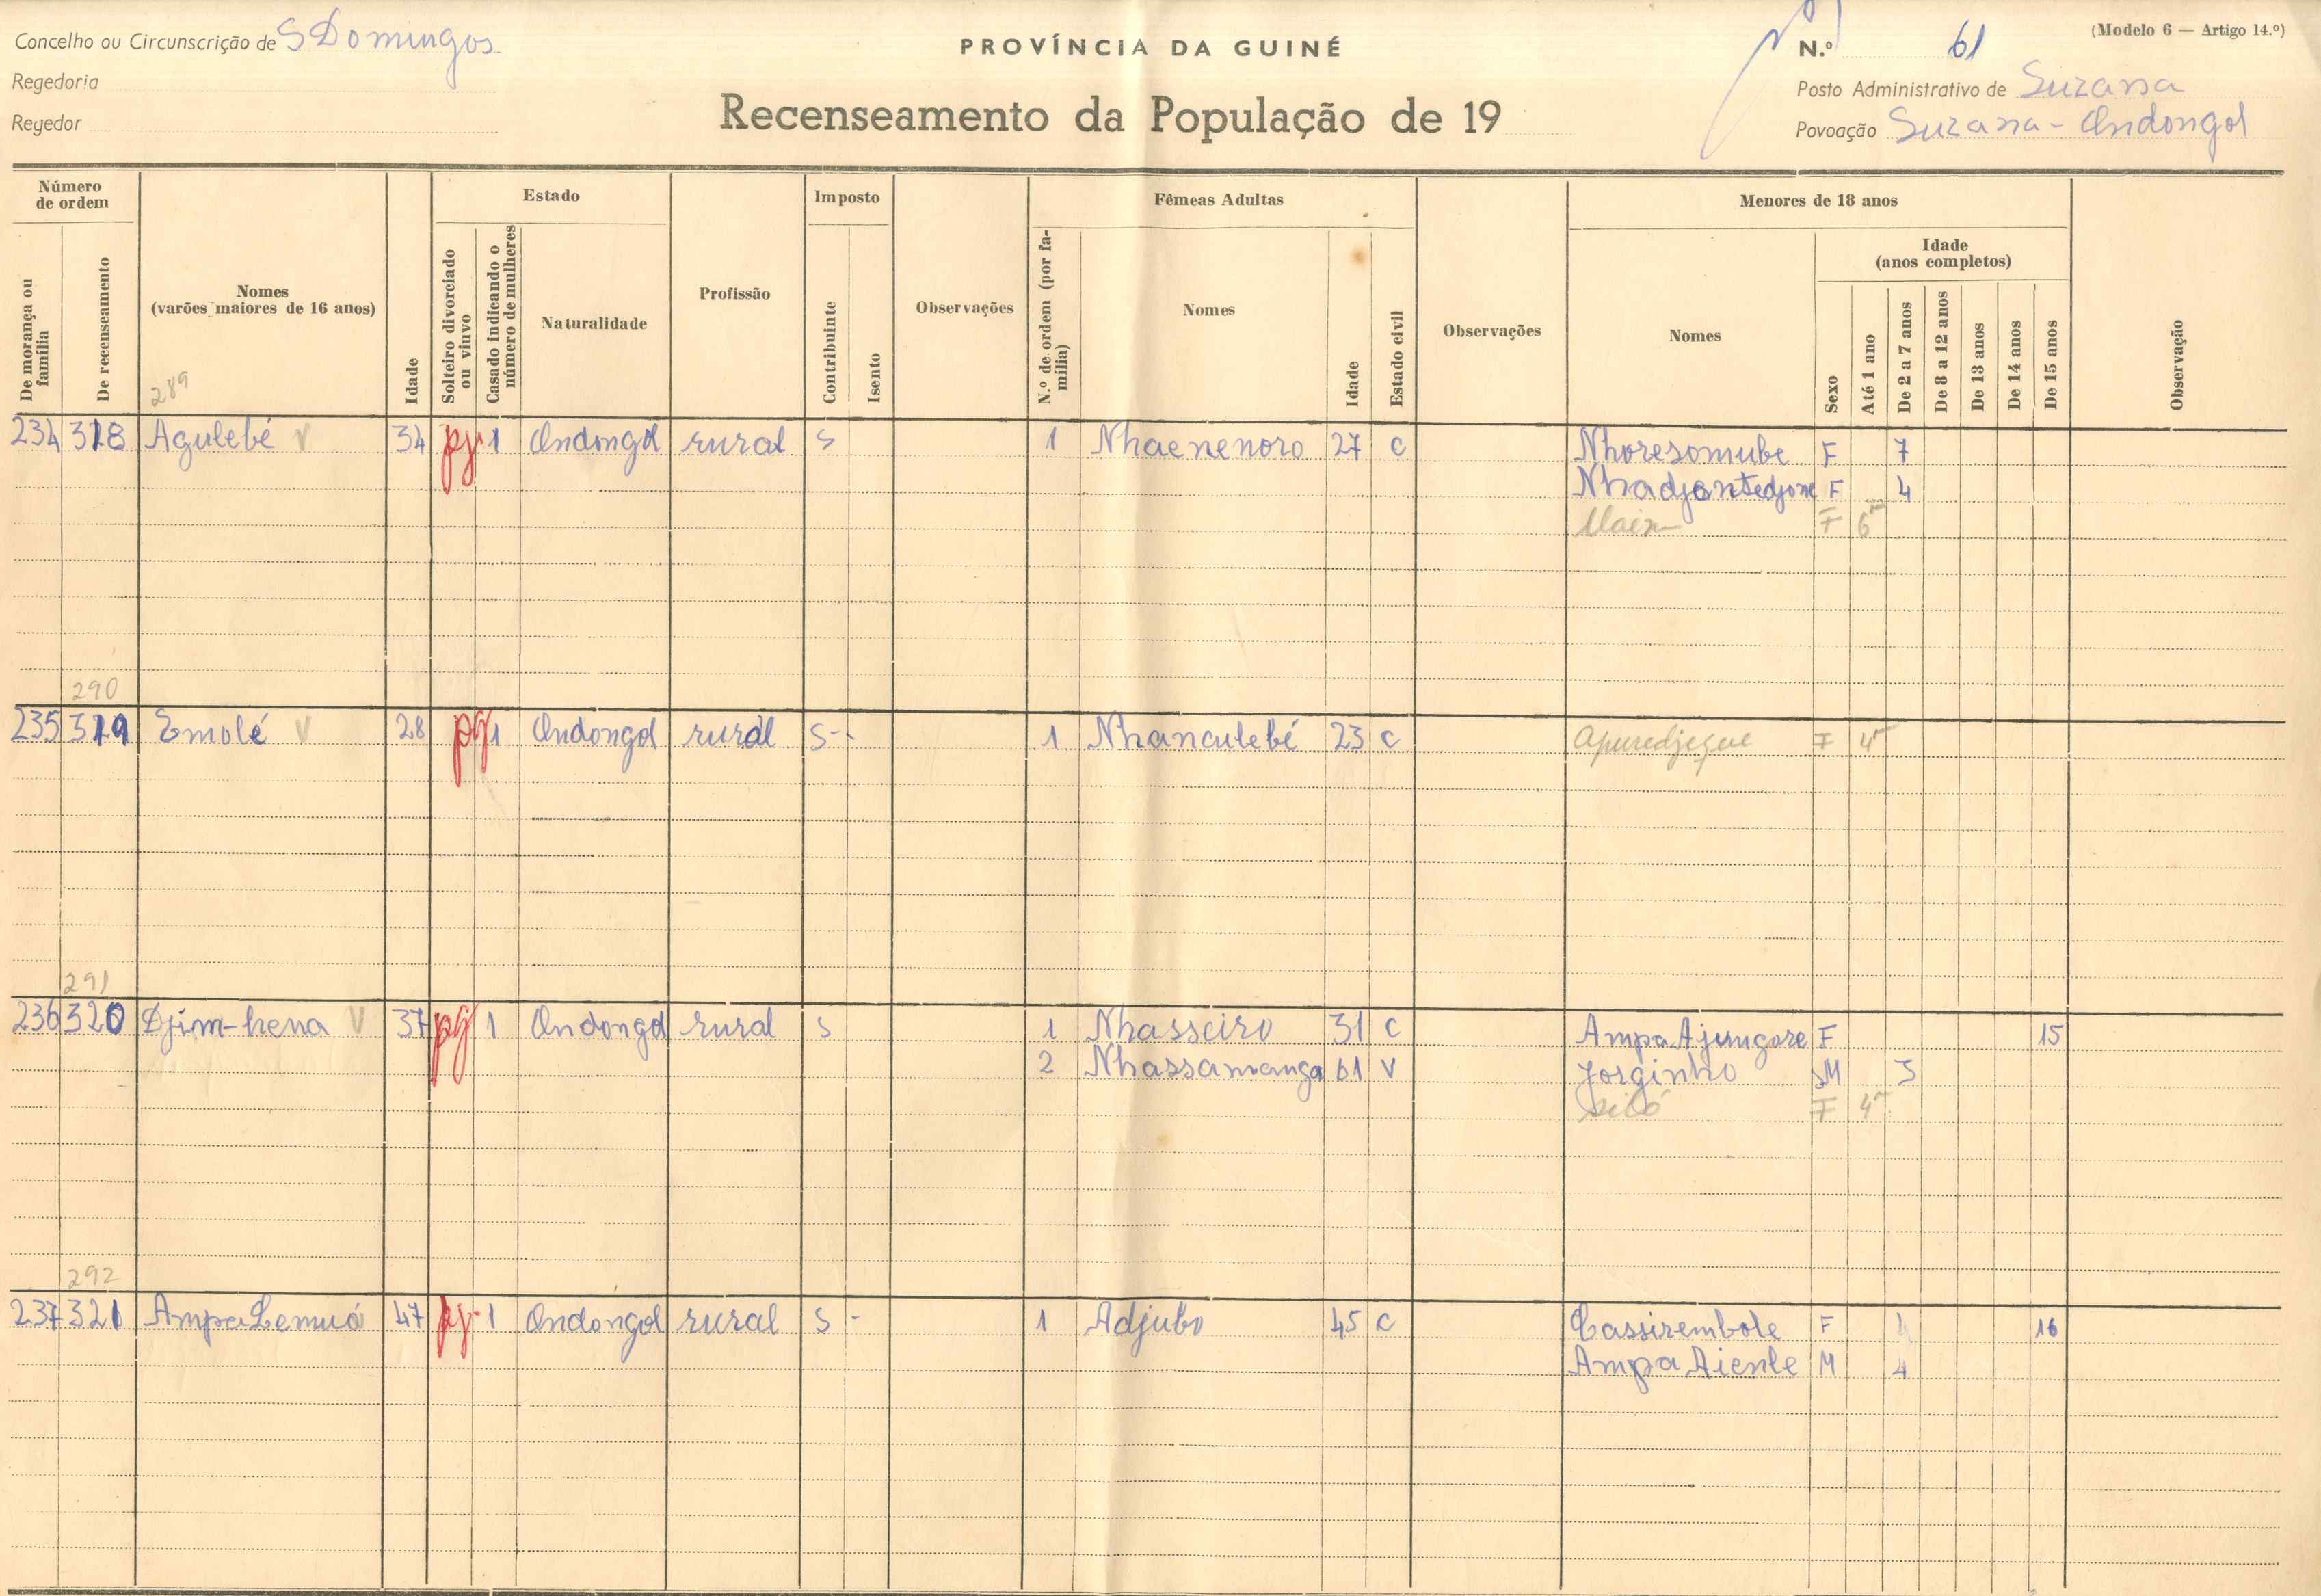 Concelho ou Circunscrição de S Domingos
PROVÍNCIA DA GUINÉ
N.º 61
(Modelo 6 — Artigo 14.º)
Regedoria
Posto Administrativo de Suzana
Regedor
Recenseamento da População de 19
Povoação Suzana - Ondongol
Número de ordem
Estado
Imposto
Fêmeas Adultas
Menores de 18 anos
De morança ou família
De recenseamento
Nomes
(varões maiores de 16 anos)
Idade
Solteiro divorciado ou viuvo
Casado indicando o número de mulheres
Naturalidade
Profissão
Contribuinte
Isento
Observações
N.º de ordem (por família)
Nomes
Idade
Estado civil
Observações
Nomes
Sexo
Idade
(anos completos)
Até 1 ano
De 2 a 7 anos
De 8 a 12 anos
De 13 anos
De 14 anos
De 15 anos
Observação
289
234 318 Agulebé V 34 pg 1 Ondongol rural S 1 Nhaenenoro 27 C Nhoresomube F 7
Nhadjontedjone F 4
F 6m
290
235 319 Emolé V 28 pg 1 Ondongol rural S- 1 Nhanculebé 23 C Apuredjegue F 4m
291
236 320 Djim-hena V 37 pg 1 Ondongol rural S 1 Nhasseiro 31 C Ampa Ajungore F 15
2 Nhassamanga 61 V Jorginho M 3
F 4m
292
237 321 Ampa Lemuó 47 pg 1 Ondongol rural S - 1 Adjubo 45 C Cassirembole F 16
Ampa Aiente M 4